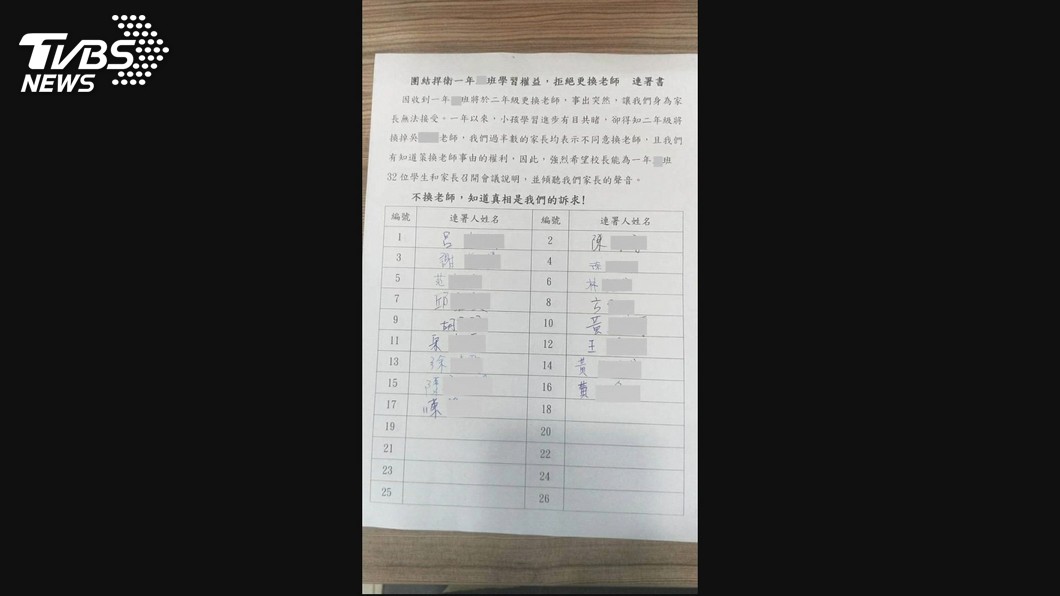 TVBS
NEWS
團結捍衛一年 班學習權益，拒絕更換老師 連署書
因收到一年 班將於二年級更換老師，事出突然，讓我們身為家
長無法接受。一年以來，小孩學習進步有目共睹，卻得知二年級將
換掉吳 老師，我們過半數的家長均表示不同意換老師，且我們
有知道策換老師事由的權利，因此，強烈希望校長能為一年 班
32位學生和家長召開會議說明，並傾聽我們家長的聲音。
不換老師，知道真相是我們的訴求!
編號 連署人姓名 編號 連署人姓名
1 呂 2 陳
3 謝 4
5 范 6 林
7 邱 8 方
9 胡 10 黃
11 12 王
13 徐 14 黃
15 陳 16 黃
17 陳 18
19 20
21 22
23 24
25 26